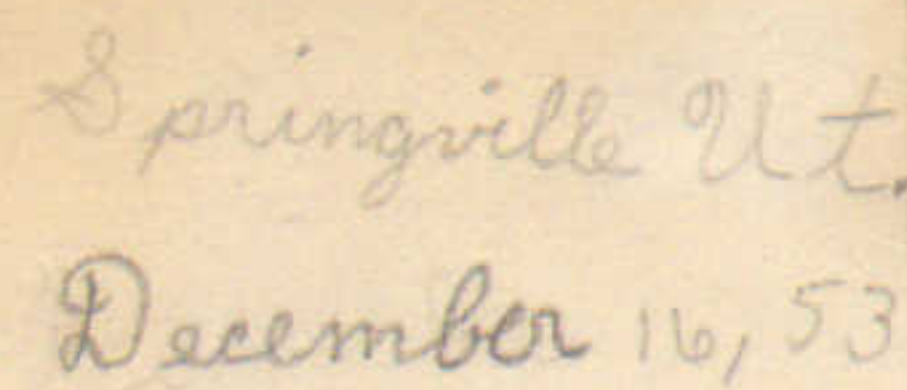 Springville Ut.
December 16, 53